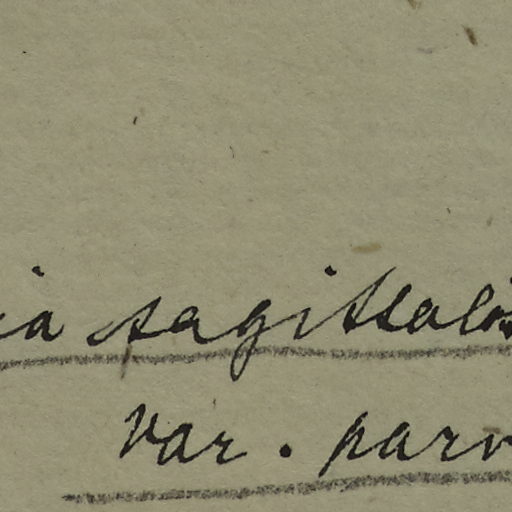 ia sagittalis
var. parv